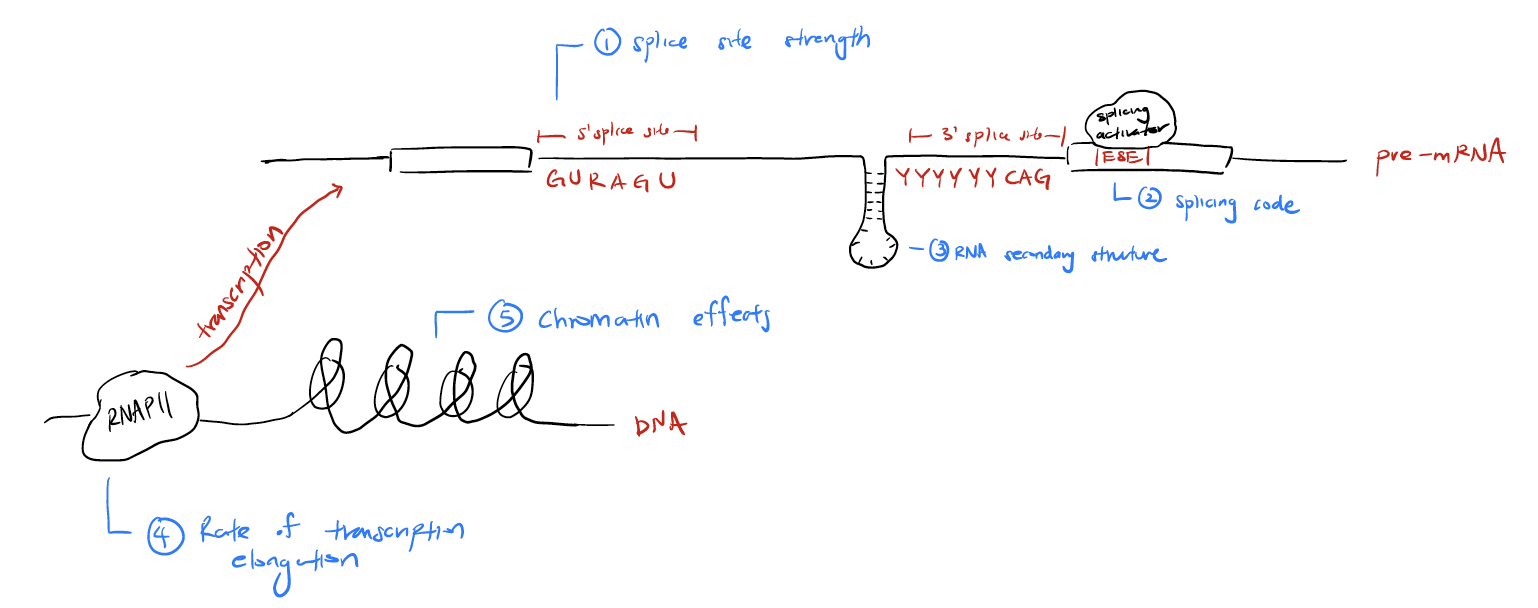 ① splice site strength
5' splice site
3' splice site
splicing
activator
ESE
pre-mRNA
GURAGU
YYYYYYCAG
② splicing code
③ RNA secondary structure
transcription
⑤ chromatin effects
RNAPII
DNA
④ Rate of transcription
elongation